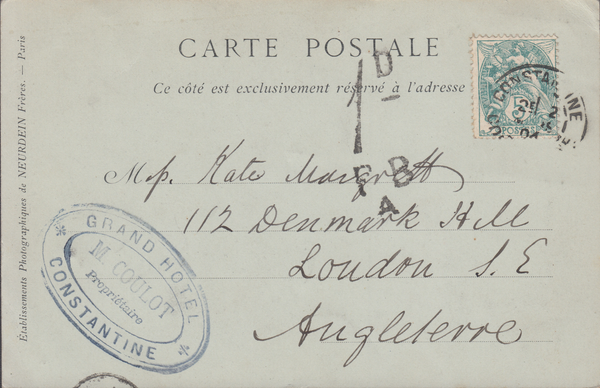 CARTE POSTALE
Ce côté est exclusivement réservé à l'adresse
1D
F B
A
5
POSTES
CONSTANTINE
Kate
112 Denmark Hill
London S.E
Angleterre
GRAND HOTEL
M. COULOT
Propriétaire
CONSTANTINE
Etablissements Photographiques de NEURDEIN Frères. — Paris